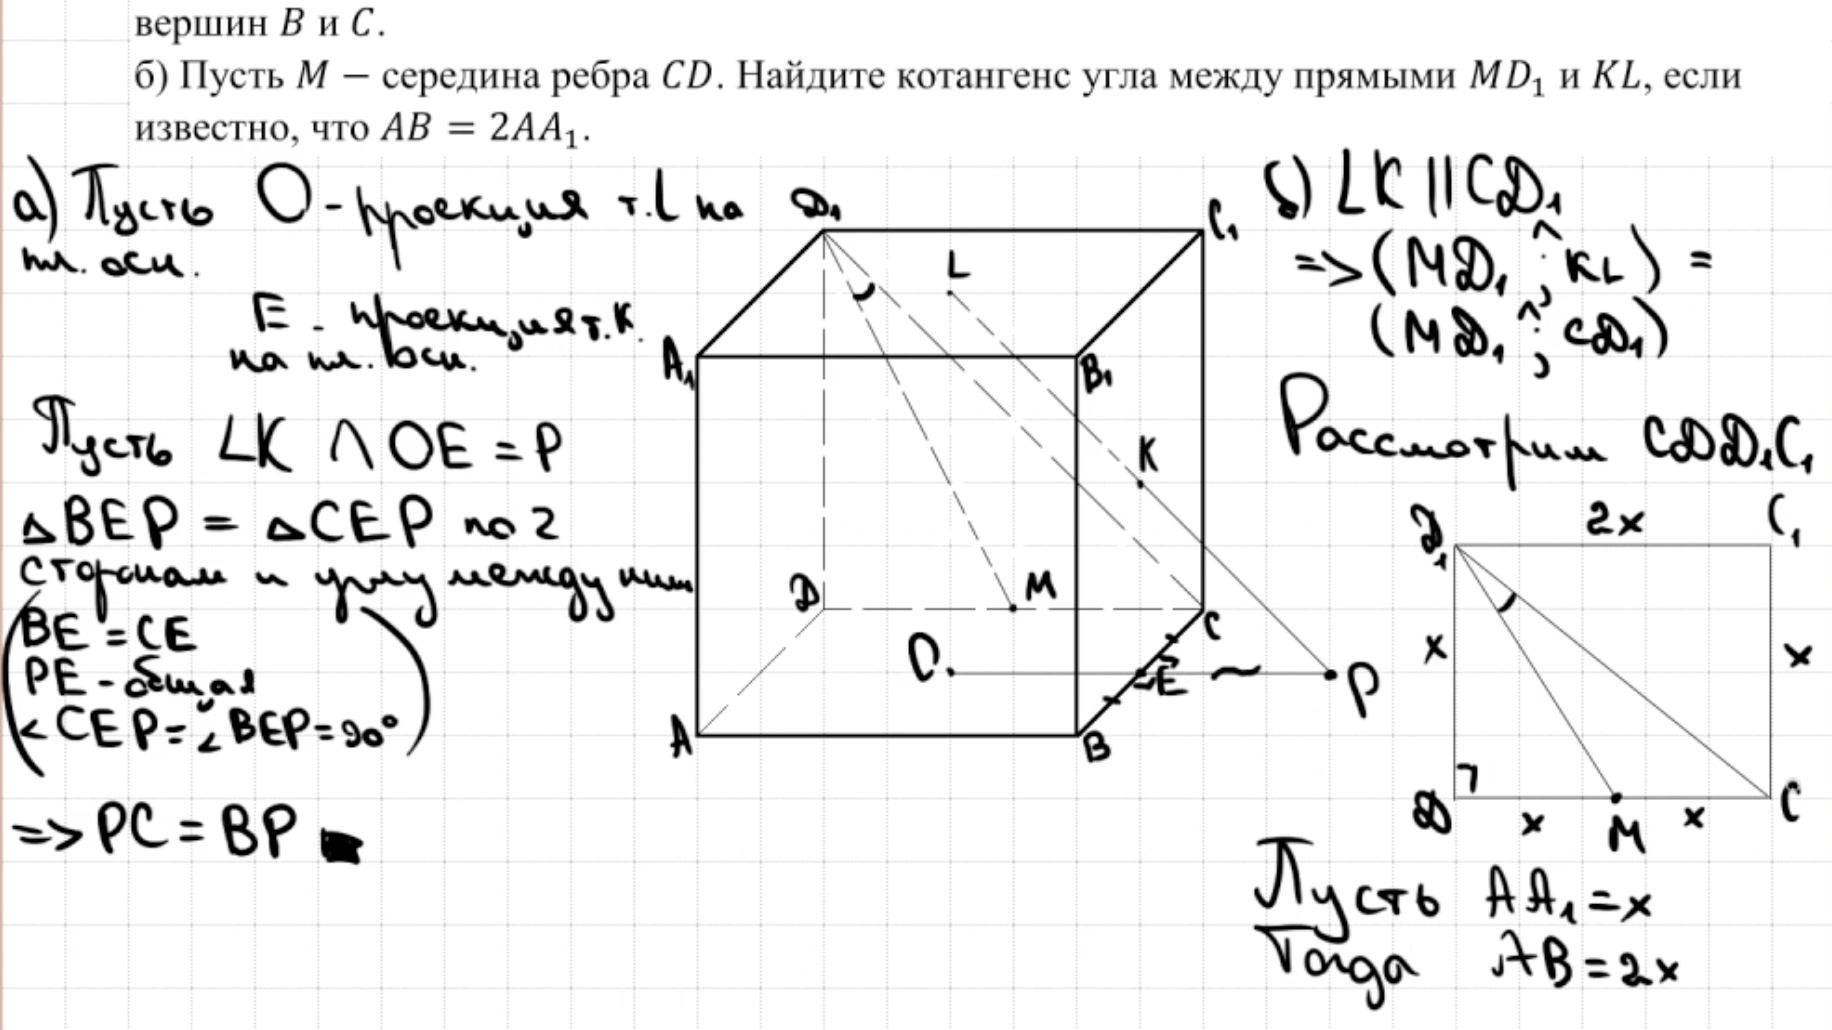 вершин B и C.
б) Пусть M – середина ребра CD. Найдите котангенс угла между прямыми MD₁ и KL, если
известно, что AB = 2AA₁.
а) Пусть O - проекция т. L на
пл. осн.
E - проекция т. K
на пл. осн.
Пусть LK ∩ OE = P
△BEP = △CEP по 2
сторонам и углу между ними
BE = CE
PE - общая
∠CEP = ∠BEP = 90°
=> PC = BP
D₁
C₁
L
A₁
B₁
K
D
M
C
O
E
P
A
B
б) LK || CD₁
=> (MD₁ ; KL) =
(MD₁ ; CD₁)
Рассмотрим CDD₁C₁
D₁ 2x C₁
x x
D x M x C
Пусть AA₁ = x
Тогда AB = 2x